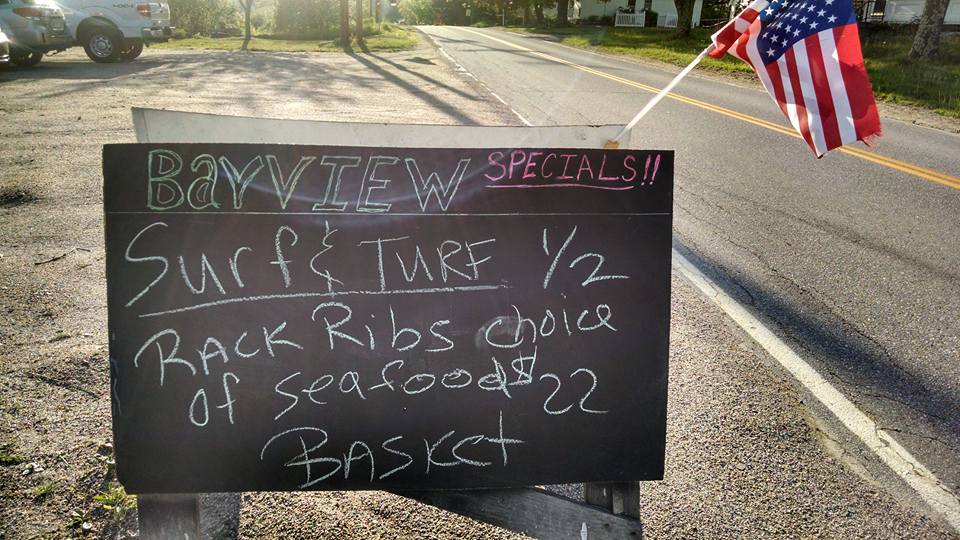 BaYVIEW SPECIALS!!
Surf & TURF 1/2
RACK Ribs choice
of seafood $22
BASKET